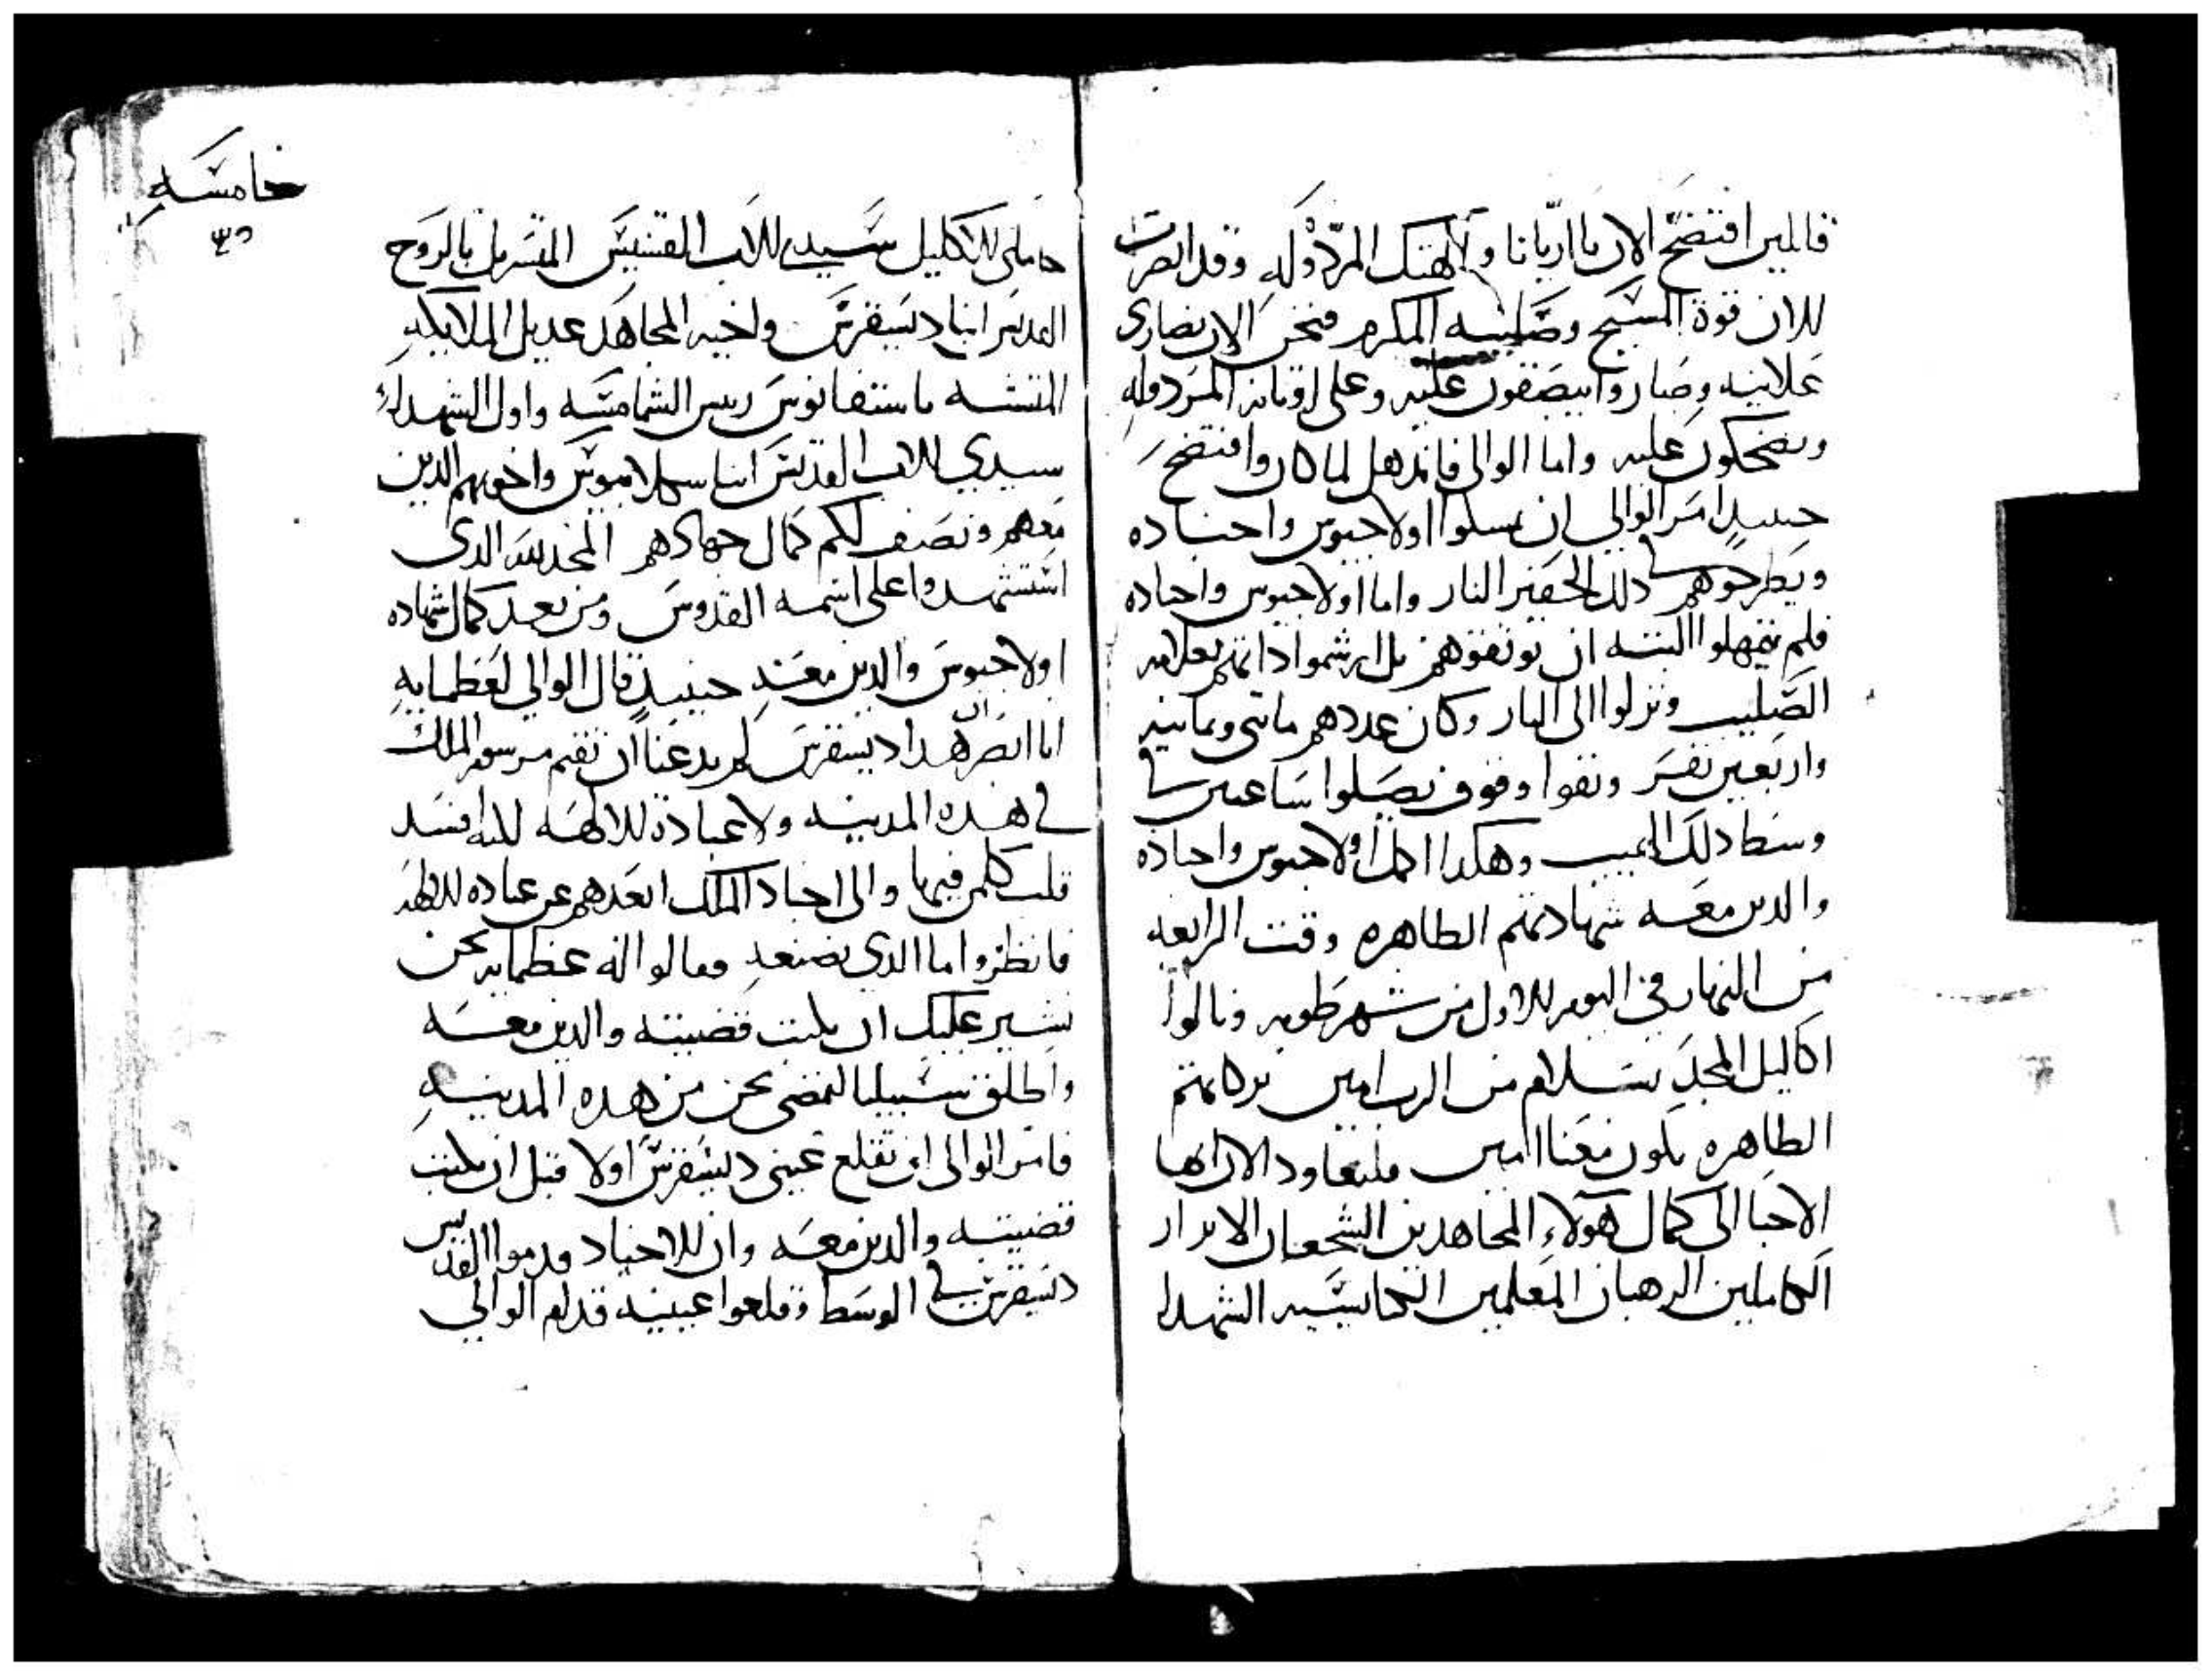 قالين افتضح الان يا اريانا والهتك المردوله وقد ابصرت
الان قوة المسيح وصليبه المكرم فنحن الان نصارى
علانيه وصاروا يبصقون عليه وعلى اوثانه المردوله
ويضحكون عليه واما الوالى فاندهل لما كان وافتضح
حينيد امر الوالي ان يسلوا اولاجيوس واجناده
ويطرحوهم في دلك الحفير النار واما اولاجيوس واجناده
فلم يمهلوا البته ان يوثقوهم بل ارشموا داتهم بعلامه
الصليب ونزلوا الى النار وكان عددهم مايتى وتمانيه
واربعين نفس وبقوا وقوف يصلوا ساعتين في
وسط دلك اللهيب وهكدا اكمل اولاجيوس واجناده
والدين معه شهادتهم الطاهره وقت الرابعه
من النهار في اليوم الاول من شهر طوبه ونالوا
اكاليل المجد بسلام من الرب امين بركاتهم
الطاهره تكون معنا امين فلنعاود الان ايها
الاحبا الى كمال هولاء المجاهدين الشجعان الابرار
الكاملين الرهبان المعلمين الكنايسيه الشهدا
خامسه
٣٥
حاملى الاكليل سيدي الاب القسيس المتسربل بالروح
القدس انبا ديسقرس واخيه المجاهد عديل الملايكه
المتشبه باستفانوس ريس الشمامسه واول الشهدا
سيدي الاب القديس انبا سكلابيوس واخوتهم الدين
معهم ونصف لكم كمال جهادهم المقدس الدى
استشهدوا على اسمه القدوس ومن بعد كمال شهاده
اولاجيوس والدين معه حينيد قال الوالي لعظمايه
انا ابصر ان هدا ديسقرس لم يدعنا ان نقيم مرسوم الملك
في هده المدينه ولا عبادة الالهه لانه افسد
قلب كلمن فيها والى اجناد الملك ابعدهم عن عباده الالهه
فانظروا ما الدى نصنعه فقالوا له عظمايه نحن
نشير عليك ان تكتب قضيته والدين معه
واطلق سبيلنا لنمضى نحن من هده المدينه
فامر الوالى ان تقلع عينى ديسقرس اولا قبل ان يكتب
قضيته والدين معه وان الاجناد قدموا القديس
ديسقرس في الوسط وقلعوا عينيه قدام الوالي